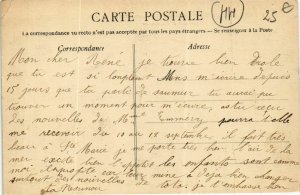 CARTE POSTALE
MM
25 €
La correspondance au recto n'est pas acceptée par tous les pays étrangers — Se renseigner à la Poste
Correspondance
Adresse
Mon cher René, je trouve bien drôle
que tu est si longtemps m'écrire depuis
15 jours que tu parle de saumur tu aurai pu
trouver un moment pour m'écrire, as tu reçu
des nouvelles de Mme pourra-t-elle
me recevoir du 10 au 12 septembre il fait très
beau à Ste Marie je me porte très bien l'air de la
mer excite bien l'appétit les enfants sont comme
moi mine a déja bien changer
surtout des nouvelles de toto, je t'embrasse bien